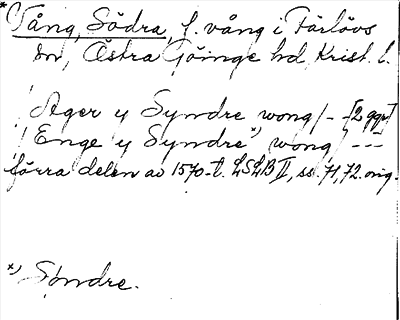 * Vång, Södra, f. vång i Färlövs
sn, Östra Göinge hd, Krist. l.
/Ager y Syndre wong/ - [2 ggr]
/Enge y Syndre *) wong/ ---
förra delen av 1570-t. LSLB II, ss. 71, 72. orig.
*) Søndre.